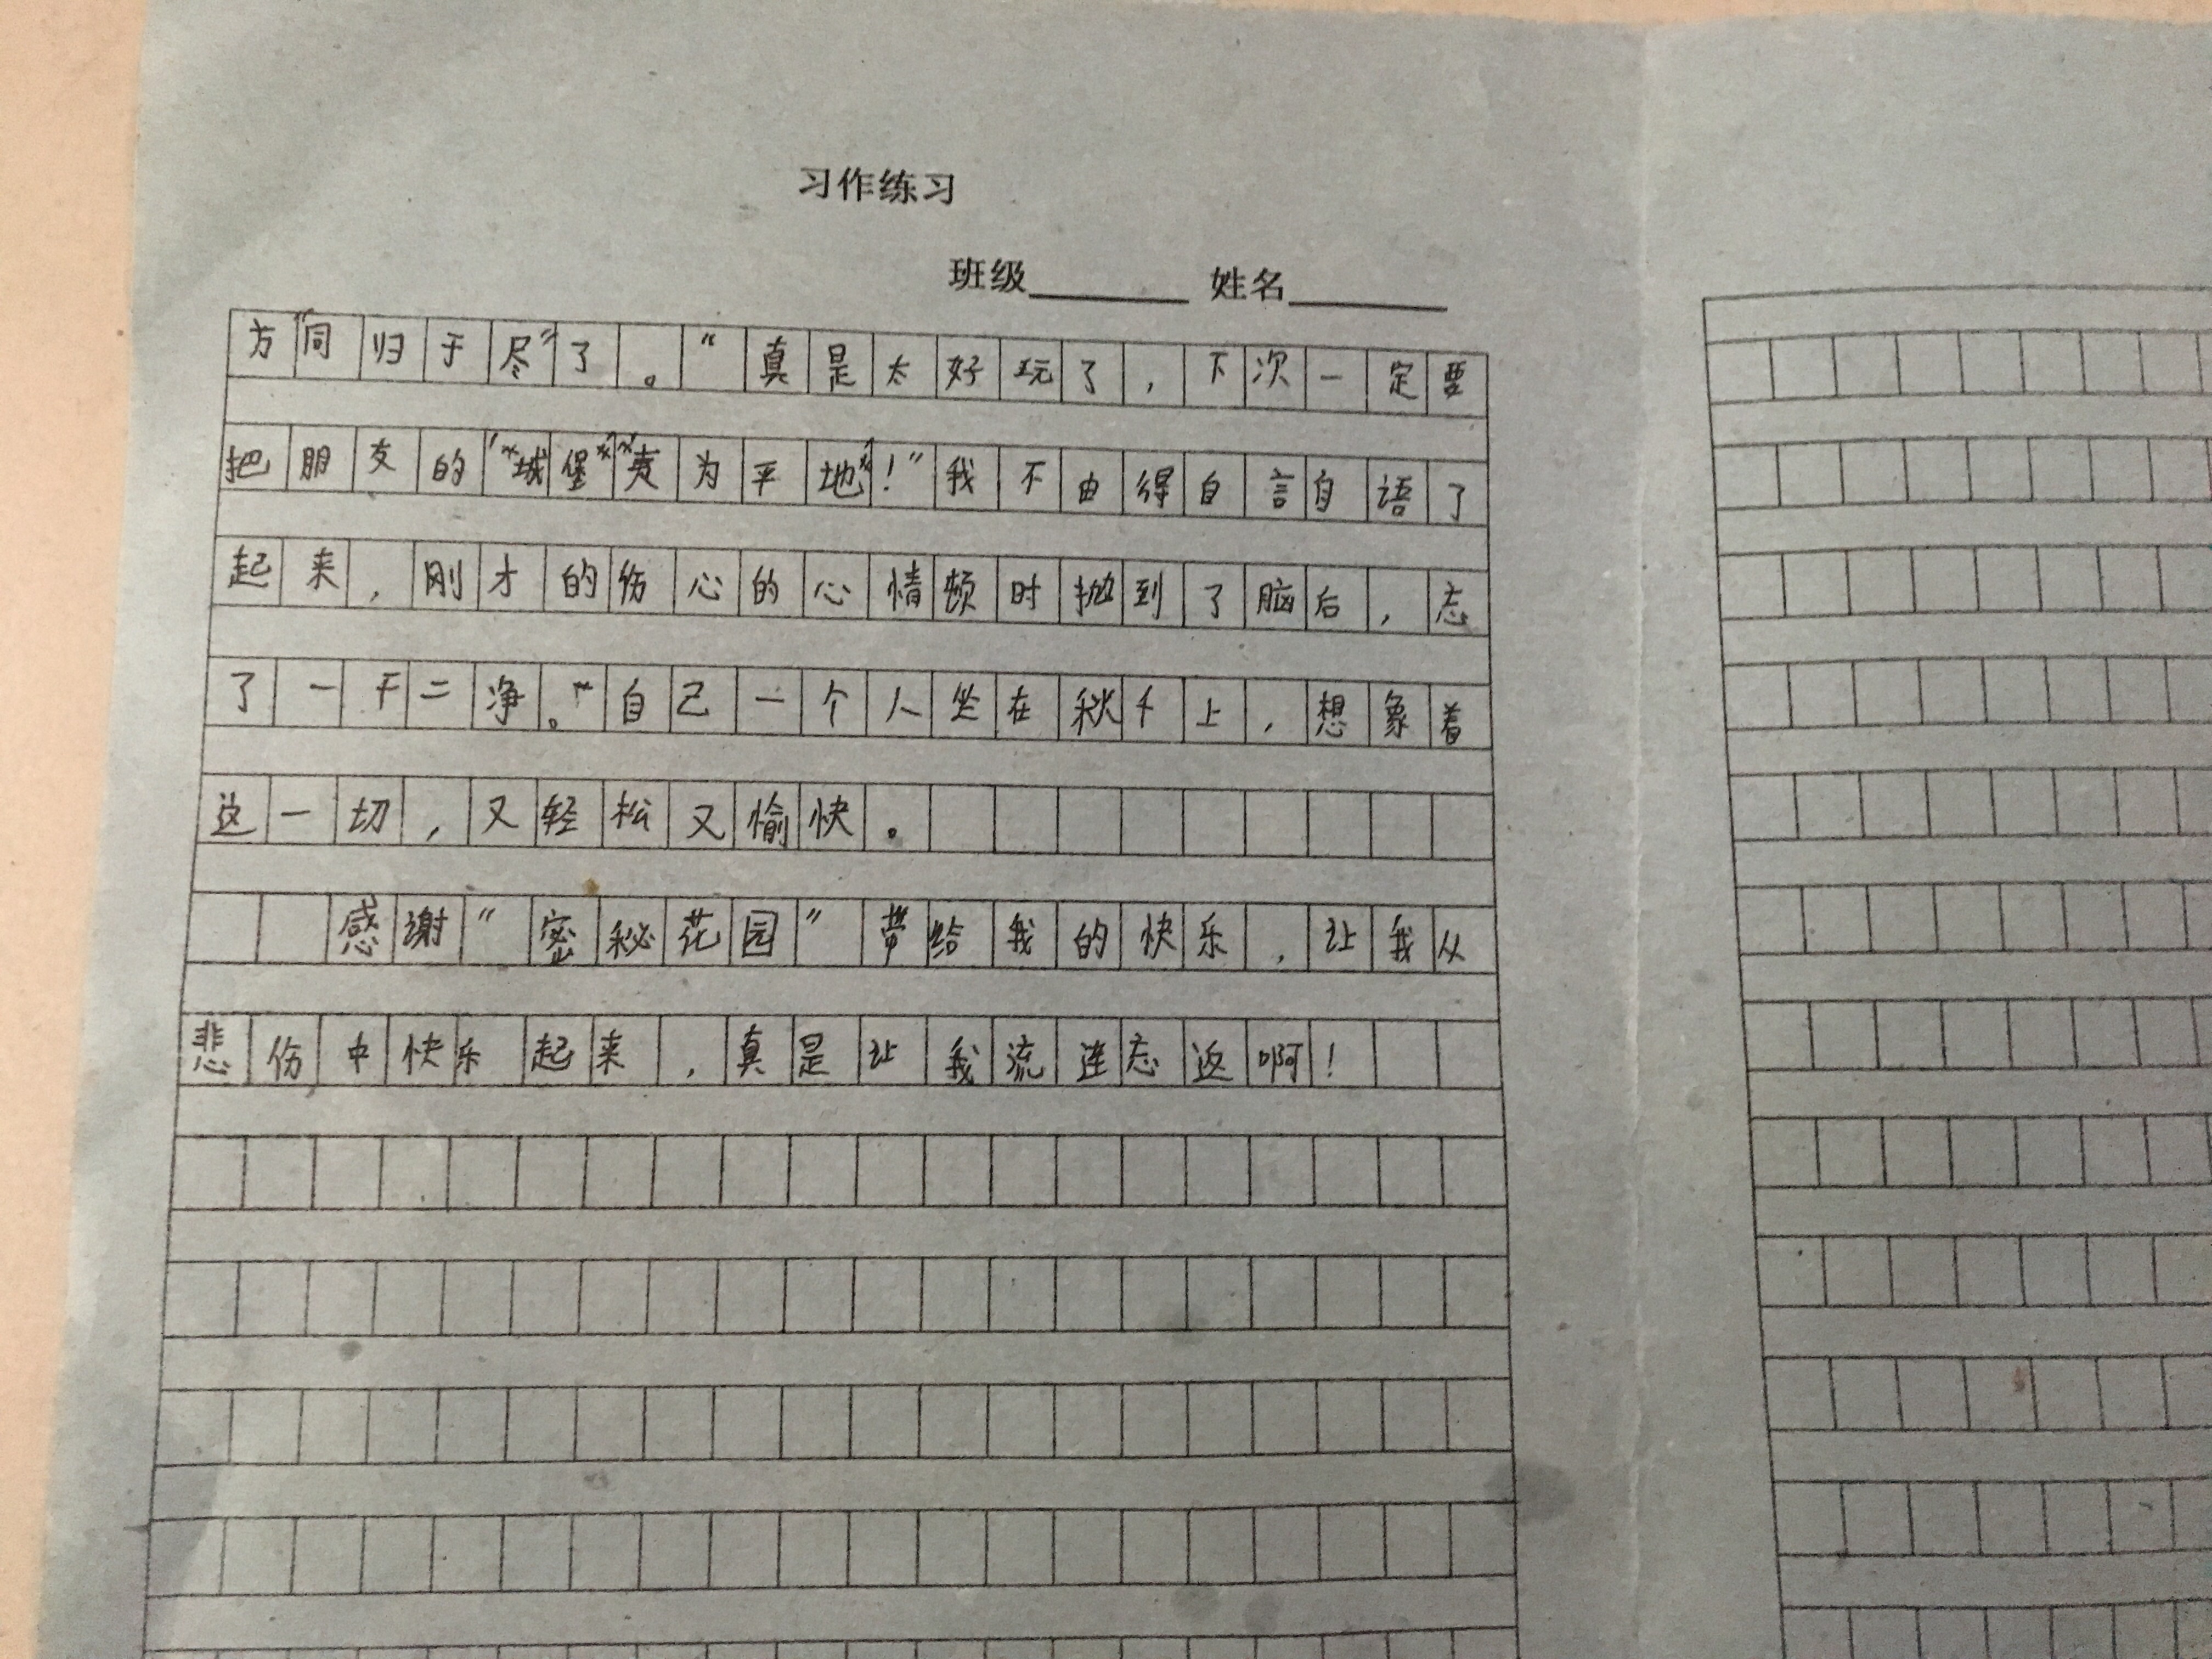 习作练习
班级 姓名
方“同归于尽”了。“真是太好玩了，下次一定要
把朋友的‘“城堡”“夷为平地”！”我不由得自言自语了
起来，刚才的伤心的心情顿时抛到了脑后，忘
了一干二净。“自己一个人坐在秋千上，想象着
这一切，又轻松又愉快。
感谢“密秘花园”带给我的快乐，让我从
悲伤中快乐起来，真是让我流连忘返啊！